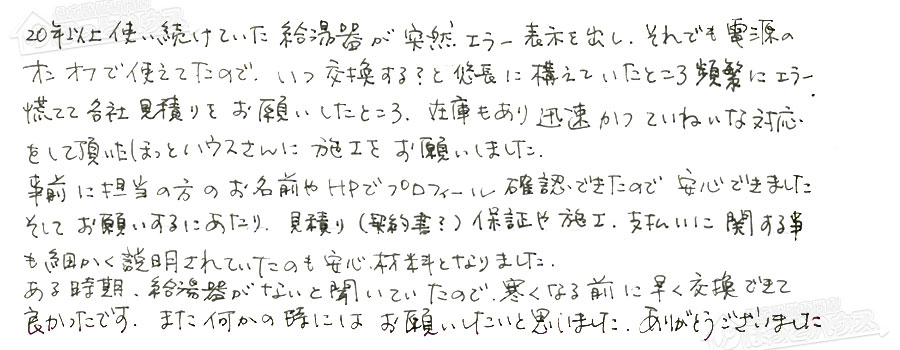 20年以上使い続けていた給湯器が突然エラー表示を出し、それでも電源の
オンオフで使えてたので、いつ交換する？と悠長に構えていたところ頻繁にエラー、
慌てて各社見積りをお願いしたところ、在庫もあり迅速かつていねいな対応
をして頂いたほっとハウスさんに施工をお願いしました。
事前に担当の方のお名前やHPでプロフィール確認できたので安心できました
そしてお願いするにあたり、見積り（契約書？）保証や施工、支払いに関する事
も細かく説明されていたのも安心材料となりました。
ある時期、給湯器がないと聞いていたので、寒くなる前に早く交換できて
良かったです。また何かの時にはお願いしたいと思いました。ありがとうございました